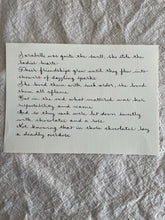 Isabella was quite the thrill, she stole the
ladies' hearts
Their friendships grew until they flew into
showers of dazzling sparks
She loved them with such ardor, she loved
them all aflame
But in the end what mattered was her
respectability and name
And so they each were let down sweetly
with chocolates and a rose
Not knowing that in those chocolates lay
a deadly overdose